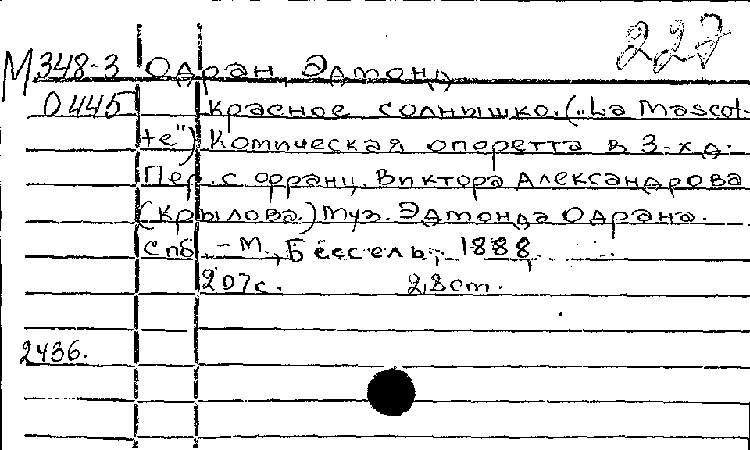 227
М 348-3 Одран, Эдмонд
О 445 Красное солнышко. („La Mascot-
te") Комическая оперетта в 3-х д.
Пер. с франц. Виктора Александрова
(Крылова.) Муз. Эдмонда Одрана.
Спб. - М., Бессель, 1888.
207 с. 28 cm.
2436.